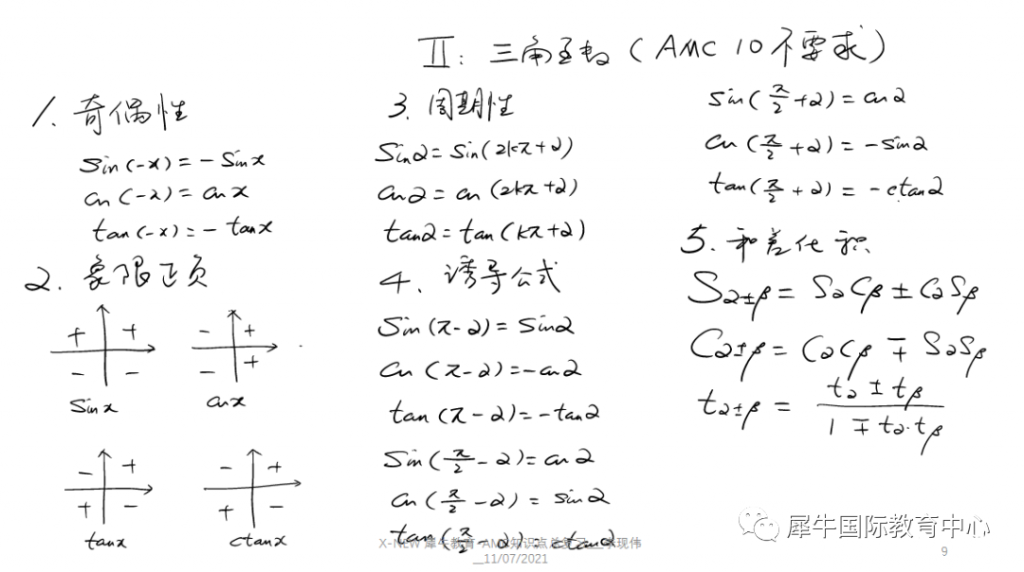 II: 三角函数 (AMC 10 不要求)
1. 奇偶性
sin(-x) = -sinx
cos(-x) = cosx
tan(-x) = -tanx
2. 象限正负
+ +
- -
sinx
- +
- +
cosx
- +
+ -
tanx
- +
+ -
ctanx
3. 周期性
sinα = sin(2kπ+α)
cosα = cos(2kπ+α)
tanα = tan(kπ+α)
4. 诱导公式
sin(π-α) = sinα
cos(π-α) = -cosα
tan(π-α) = -tanα
sin(π/2-α) = cosα
cos(π/2-α) = sinα
tan(π/2-α) = ctanα
sin(π/2+α) = cosα
cos(π/2+α) = -sinα
tan(π/2+α) = -ctanα
5. 和差化积
Sα±β = SαCβ ± CαSβ
Cα±β = CαCβ ∓ SαSβ
tα±β = tα ± tβ / 1 ∓ tα·tβ
犀牛国际教育中心
X-NEW 犀牛教育 AMC知识点总复习
现伟
__11/07/2021
9